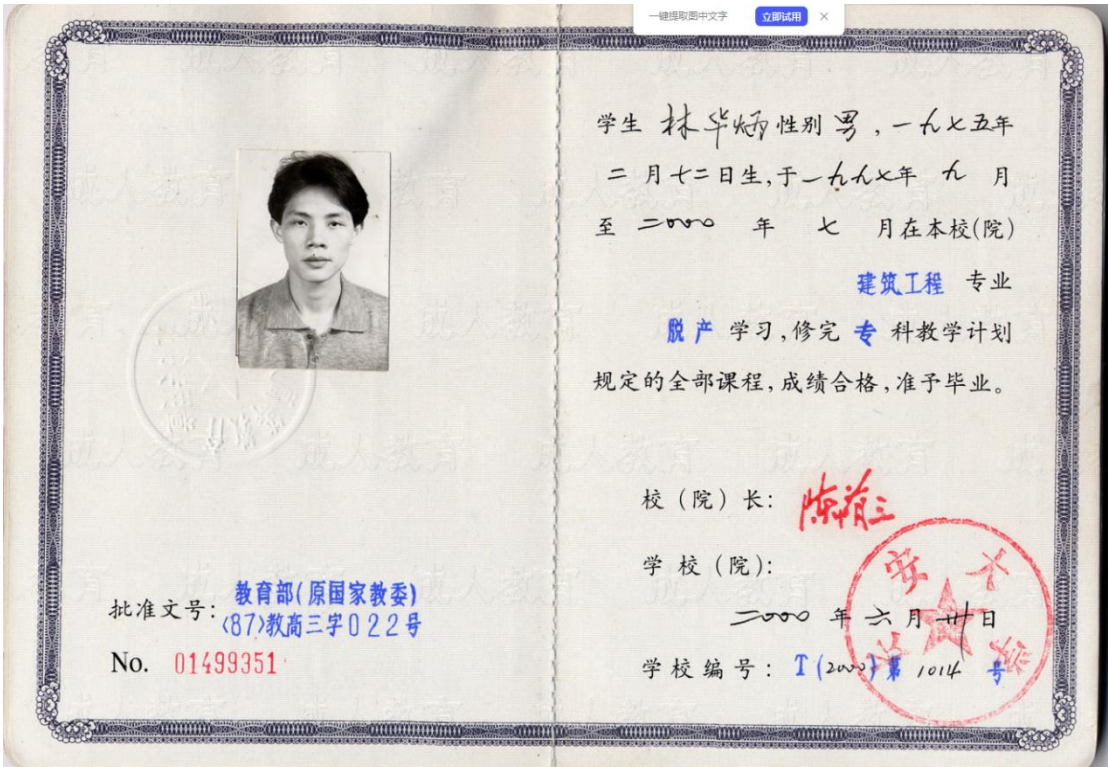 一键提取图中文字 立即试用 ×
批准文号: 教育部(原国家教委)
<87>教高三字022号
No. 01499351
学生 林华炳 性别 男,一九七五年
二月 二日生,于一九九七年 九 月
至 二000 年 七 月在本校(院)
建筑工程 专业
脱产 学习,修完 专 科教学计划
规定的全部课程,成绩合格,准予毕业。
校(院)长: 陈荫三
学校(院):
长安大学
二000 年 六 月 卅 日
学校编号: T(2000)第 1014 号
成人教育